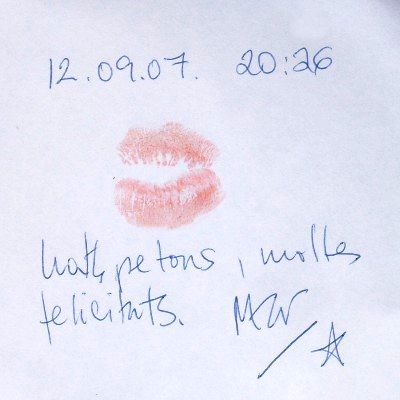 12.09.07. 20:26
petons, moltes
felicitats.